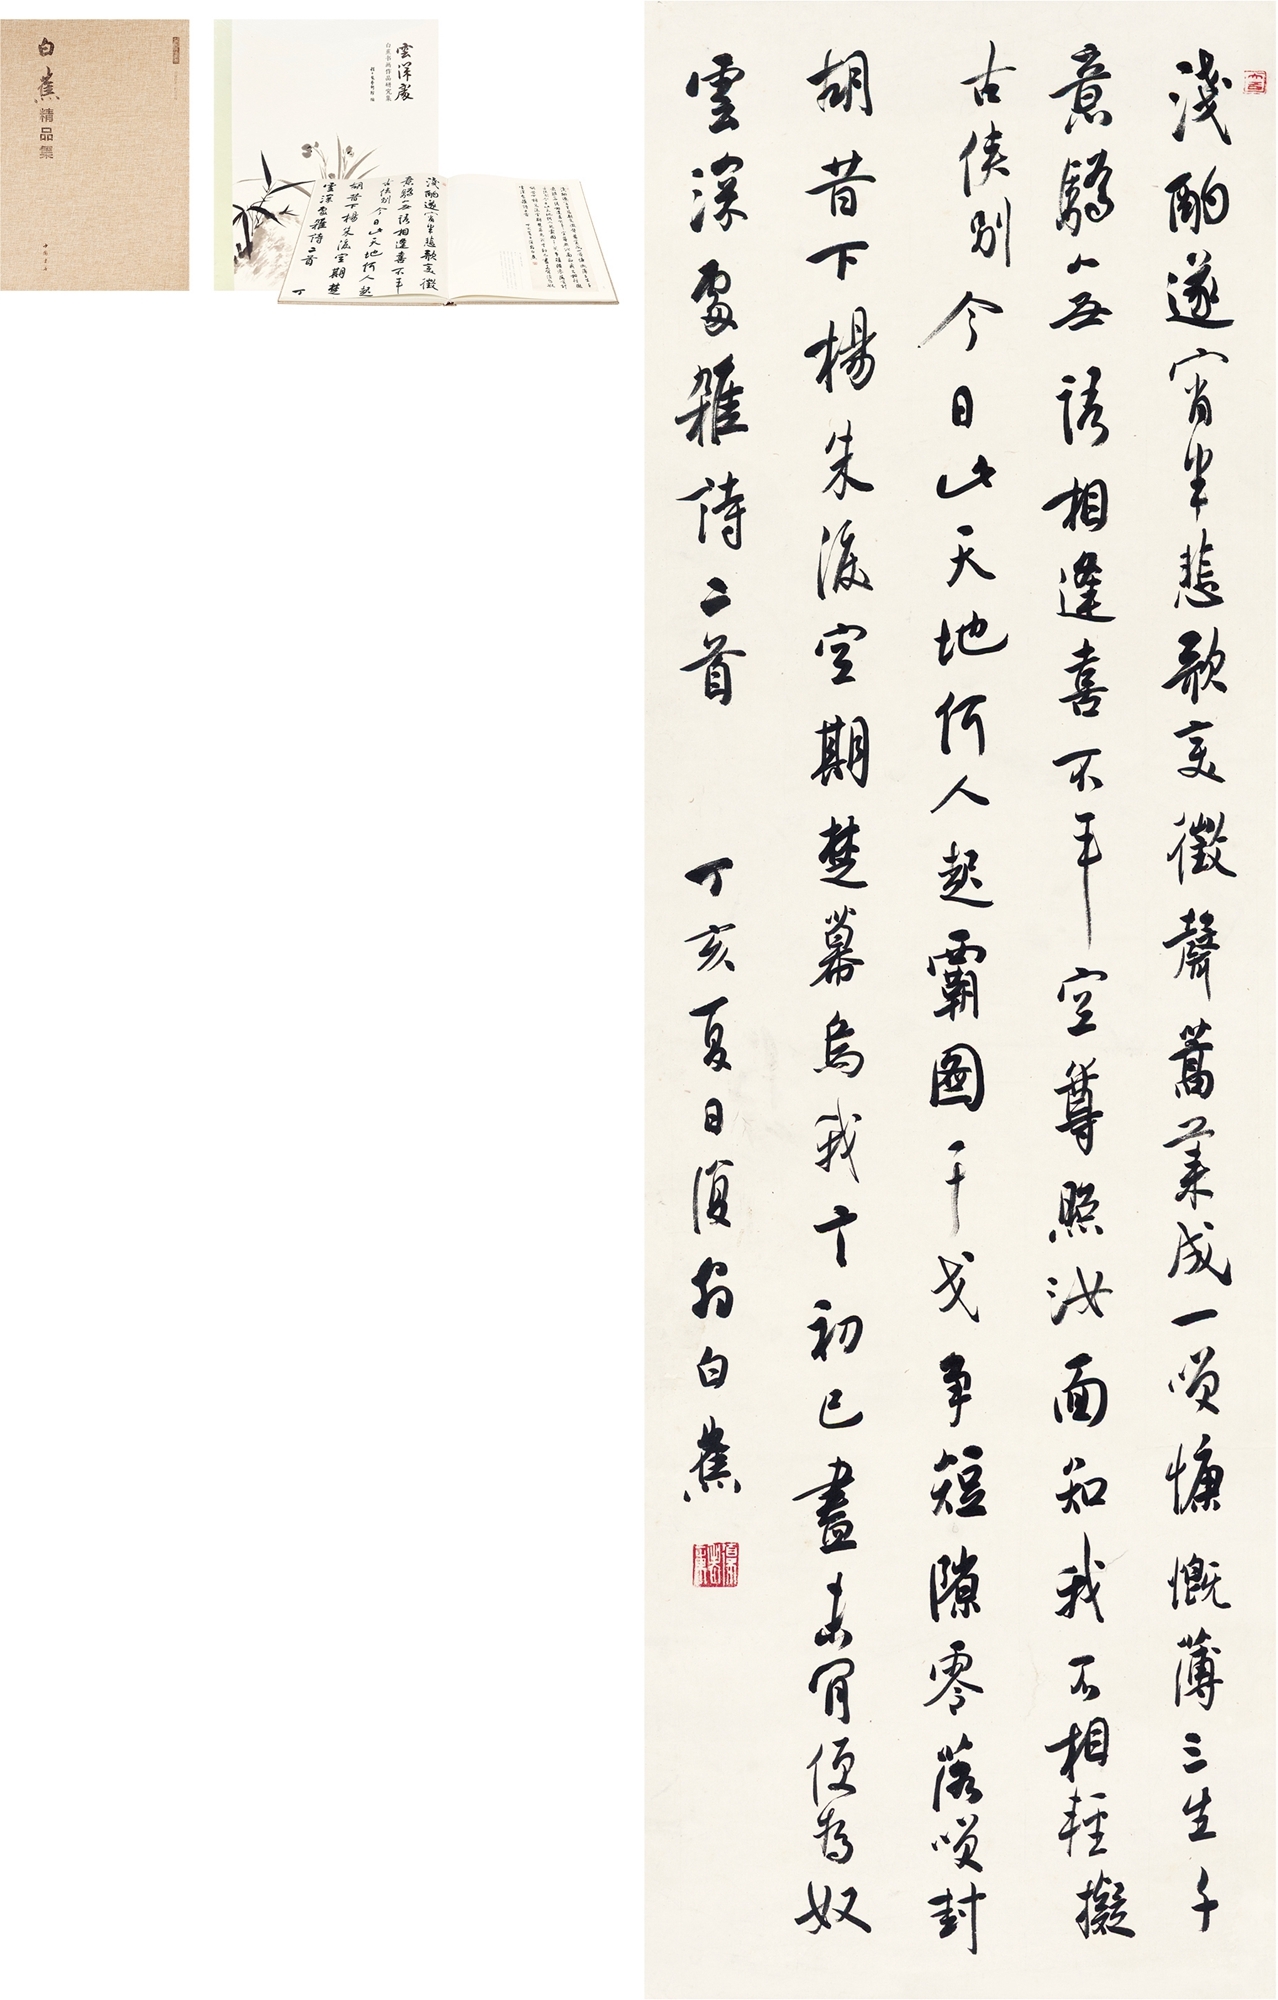 白蕉精品集
雲深處
白蕉书画作品研究集
淺酌遂宵半悲歌变徵聲蒿萊成一嘆慷慨薄三生千
意驕無語相逢喜不平空尊照汝面知我不相輕擬
古俠別 今日此天地何人起霸圖干戈爭短隙零落嘆封
胡昔下楊朱淚空期楚幕烏我亡初已盡未肯便為奴
雲深處雜詩二首 丁亥夏日復翁白蕉